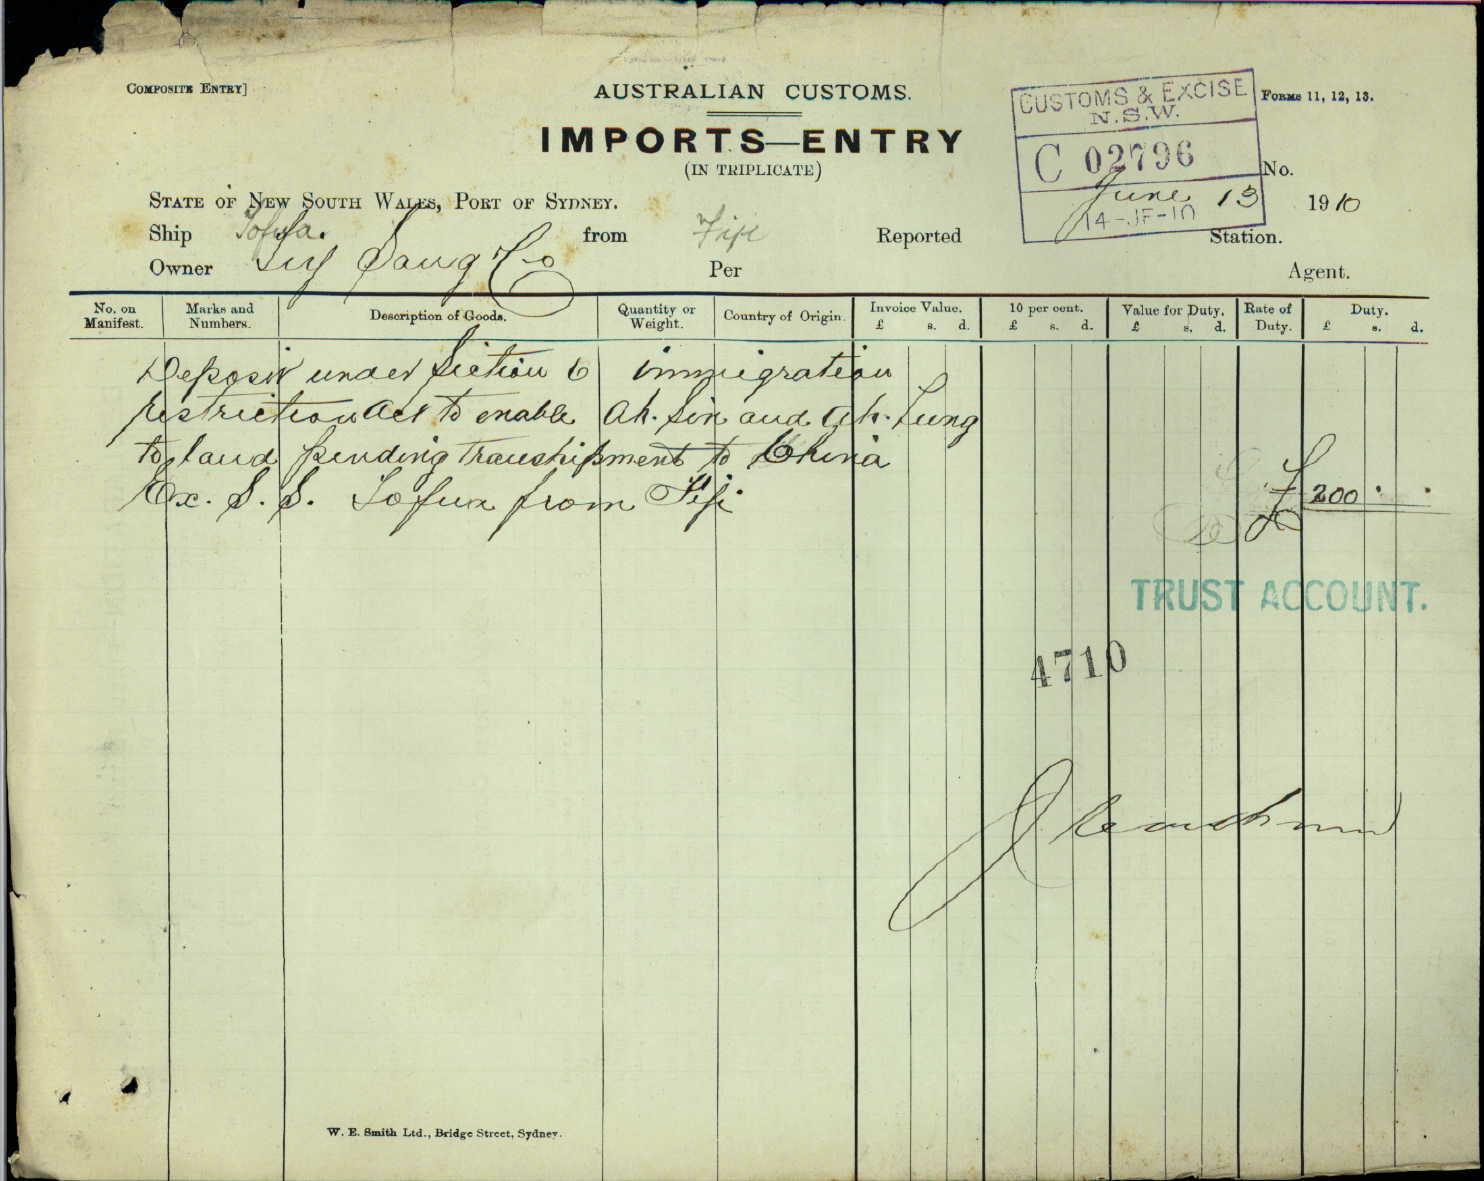 COMPOSITE ENTRY]
AUSTRALIAN CUSTOMS.
CUSTOMS & EXCISE
N.S.W.
Forms 11, 12, 13.
IMPORTS—ENTRY
(IN TRIPLICATE)
C 02796
No.
STATE OF NEW SOUTH WALES, PORT OF SYDNEY.
June 13 1910
14-JE-10
Ship Tofua. from Fiji Reported Station.
Owner Sang Co Per Agent.
No. on Manifest. Marks and Numbers. Description of Goods. Quantity or Weight. Country of Origin. Invoice Value. £ s. d. 10 per cent. £ s. d. Value for Duty. £ s. d. Rate of Duty. Duty. £ s. d.
Deposit under Section 6 immigration
restriction Act to enable Ah. Sin and Ah. Lung
to land pending transhipment to China
Ex. S. S. Tofua from Fiji £ 200
TRUST ACCOUNT.
4710
W. E. Smith Ltd., Bridge Street, Sydney.